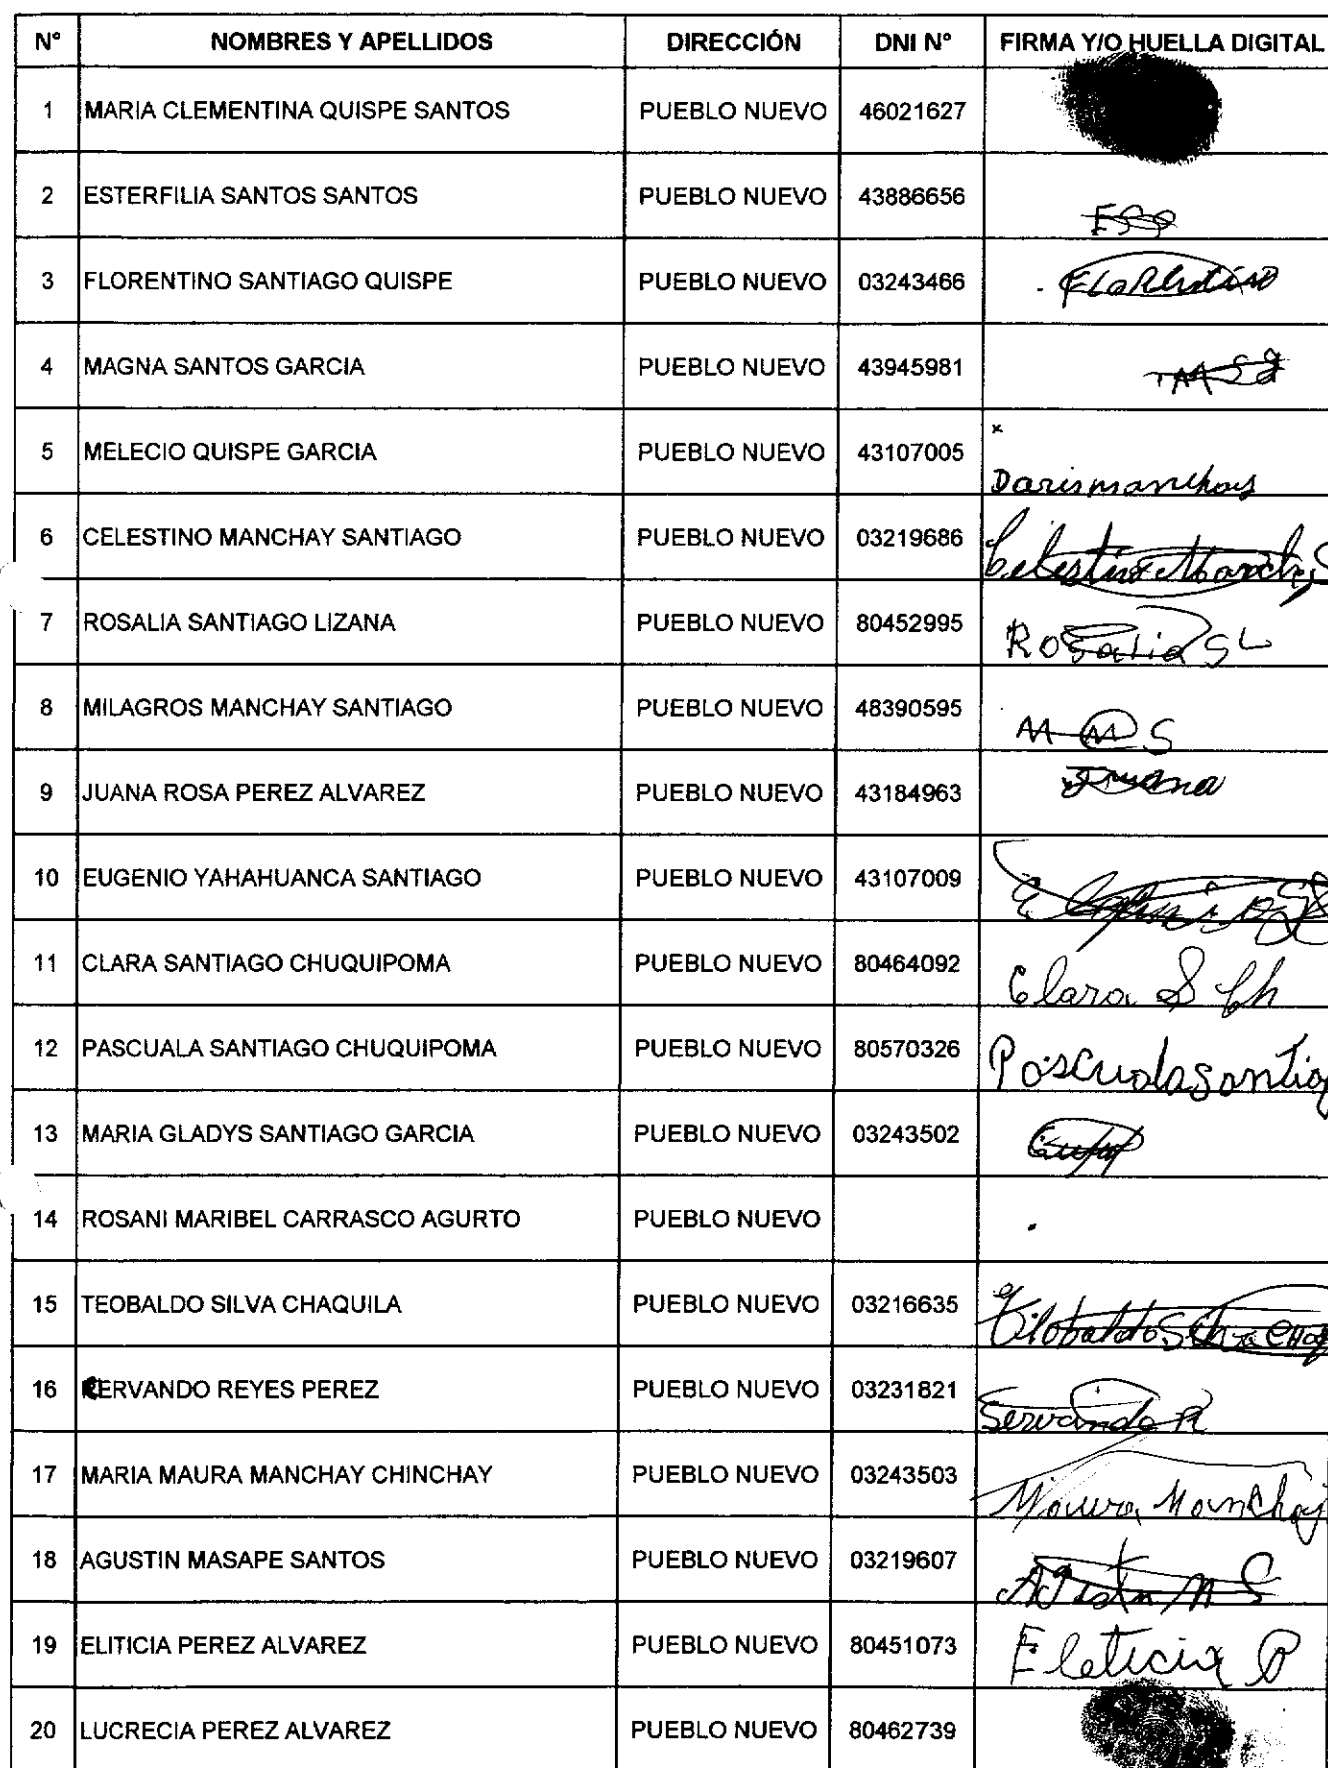 N° NOMBRES Y APELLIDOS DIRECCIÓN DNI N° FIRMA Y/O HUELLA DIGITAL
1 MARIA CLEMENTINA QUISPE SANTOS PUEBLO NUEVO 46021627
2 ESTERFILIA SANTOS SANTOS PUEBLO NUEVO 43886656 ESS
3 FLORENTINO SANTIAGO QUISPE PUEBLO NUEVO 03243466
4 MAGNA SANTOS GARCIA PUEBLO NUEVO 43945981 MSg
5 MELECIO QUISPE GARCIA PUEBLO NUEVO 43107005 x
Darismanchay
6 CELESTINO MANCHAY SANTIAGO PUEBLO NUEVO 03219686 Celestino
7 ROSALIA SANTIAGO LIZANA PUEBLO NUEVO 80452995 Rosalia SL
8 MILAGROS MANCHAY SANTIAGO PUEBLO NUEVO 48390595 M M S
9 JUANA ROSA PEREZ ALVAREZ PUEBLO NUEVO 43184963 Juana
10 EUGENIO YAHAHUANCA SANTIAGO PUEBLO NUEVO 43107009
11 CLARA SANTIAGO CHUQUIPOMA PUEBLO NUEVO 80464092 Clara S Ch
12 PASCUALA SANTIAGO CHUQUIPOMA PUEBLO NUEVO 80570326 Pascuala Santiag
13 MARIA GLADYS SANTIAGO GARCIA PUEBLO NUEVO 03243502
14 ROSANI MARIBEL CARRASCO AGURTO PUEBLO NUEVO
15 TEOBALDO SILVA CHAQUILA PUEBLO NUEVO 03216635
16 SERVANDO REYES PEREZ PUEBLO NUEVO 03231821 Servando R
17 MARIA MAURA MANCHAY CHINCHAY PUEBLO NUEVO 03243503 Maura Manchay
18 AGUSTIN MASAPE SANTOS PUEBLO NUEVO 03219607
19 ELITICIA PEREZ ALVAREZ PUEBLO NUEVO 80451073 Eleticia P
20 LUCRECIA PEREZ ALVAREZ PUEBLO NUEVO 80462739